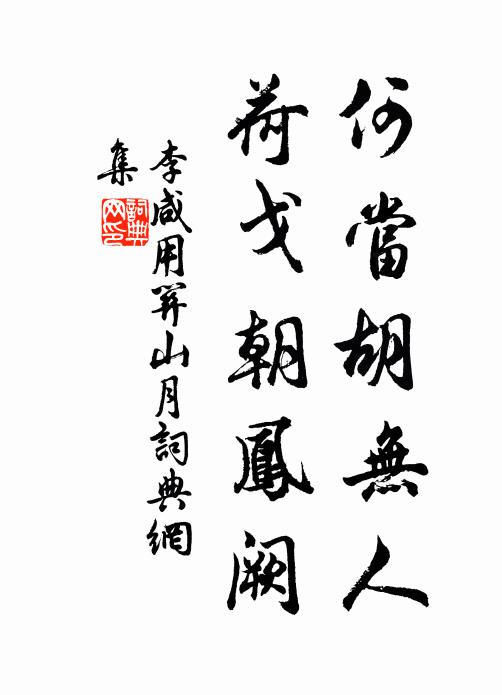 何當胡無人
荷戈朝鳳闕
李咸用關山月詞典網
集
詞典
网印